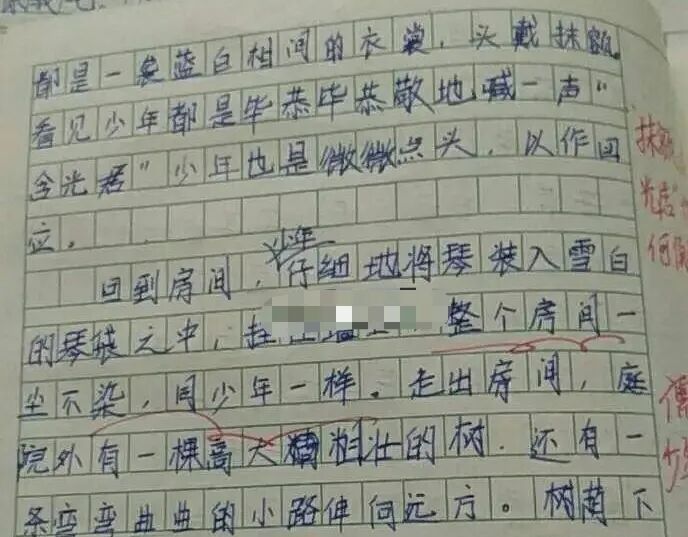 都是一袭蓝白相间的衣裳，头戴抹额。
看见少年都是毕恭毕恭敬地喊一声“
含光君”少年也是微微点头，以作回
位。
少年
回到房间，仔细地将琴装入雪白
的琴袋之中，挂在墙上，整个房间一
尘不染，同少年一样。走出房间，庭
院外有一棵高大粗壮的树．还有一
条弯弯曲曲的小路伸向远方。树荫下
抹额
光君
何